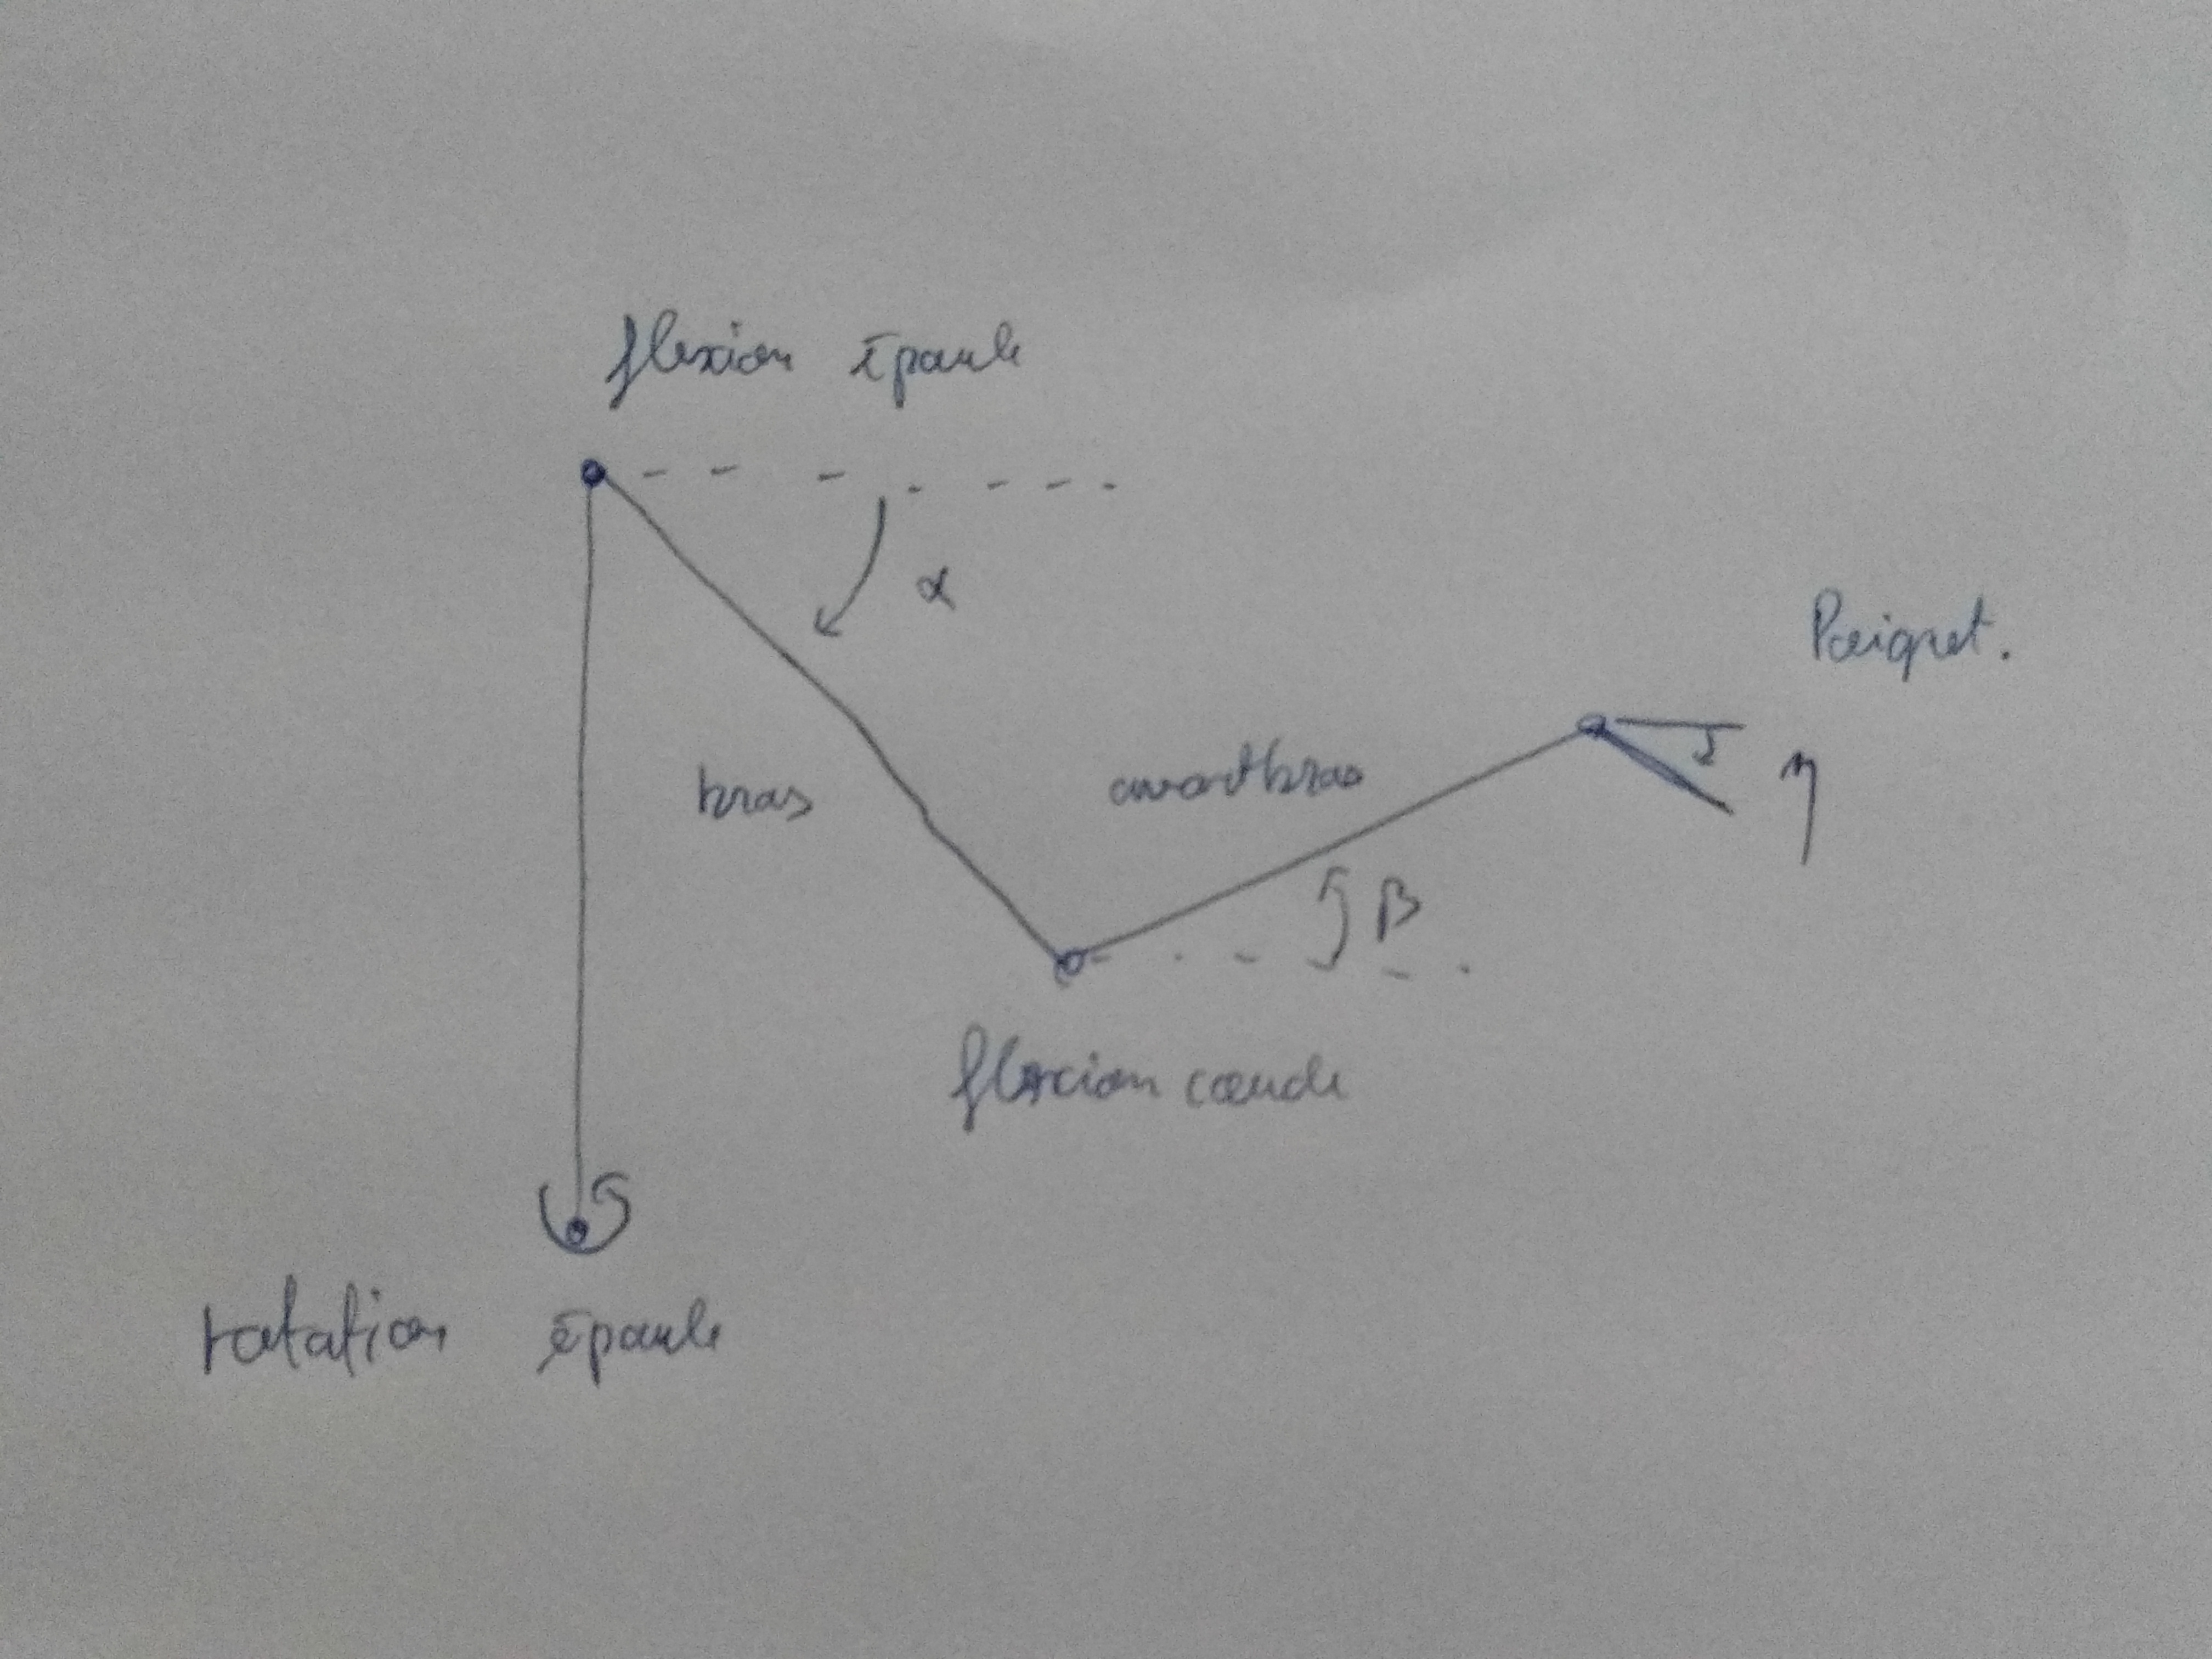 flexion épaule
α
Poignet.
bras
avantbras
η
β
flexion coude
rotation épaule